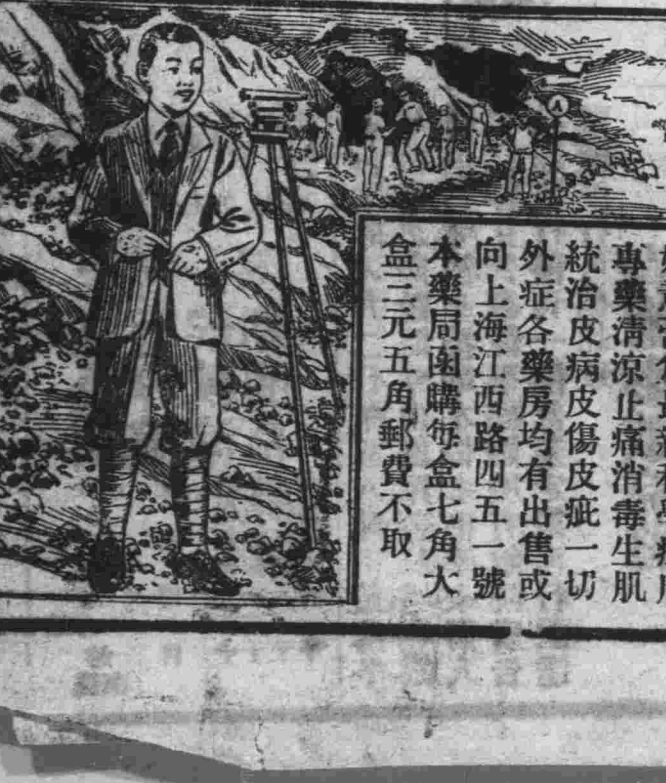 專藥清涼止痛消毒生肌
統治皮病皮傷皮疵一切
外症各藥房均有出售或
向上海江西路四五一號
本藥局函購每盒七角大
盒三元五角郵費不取
A